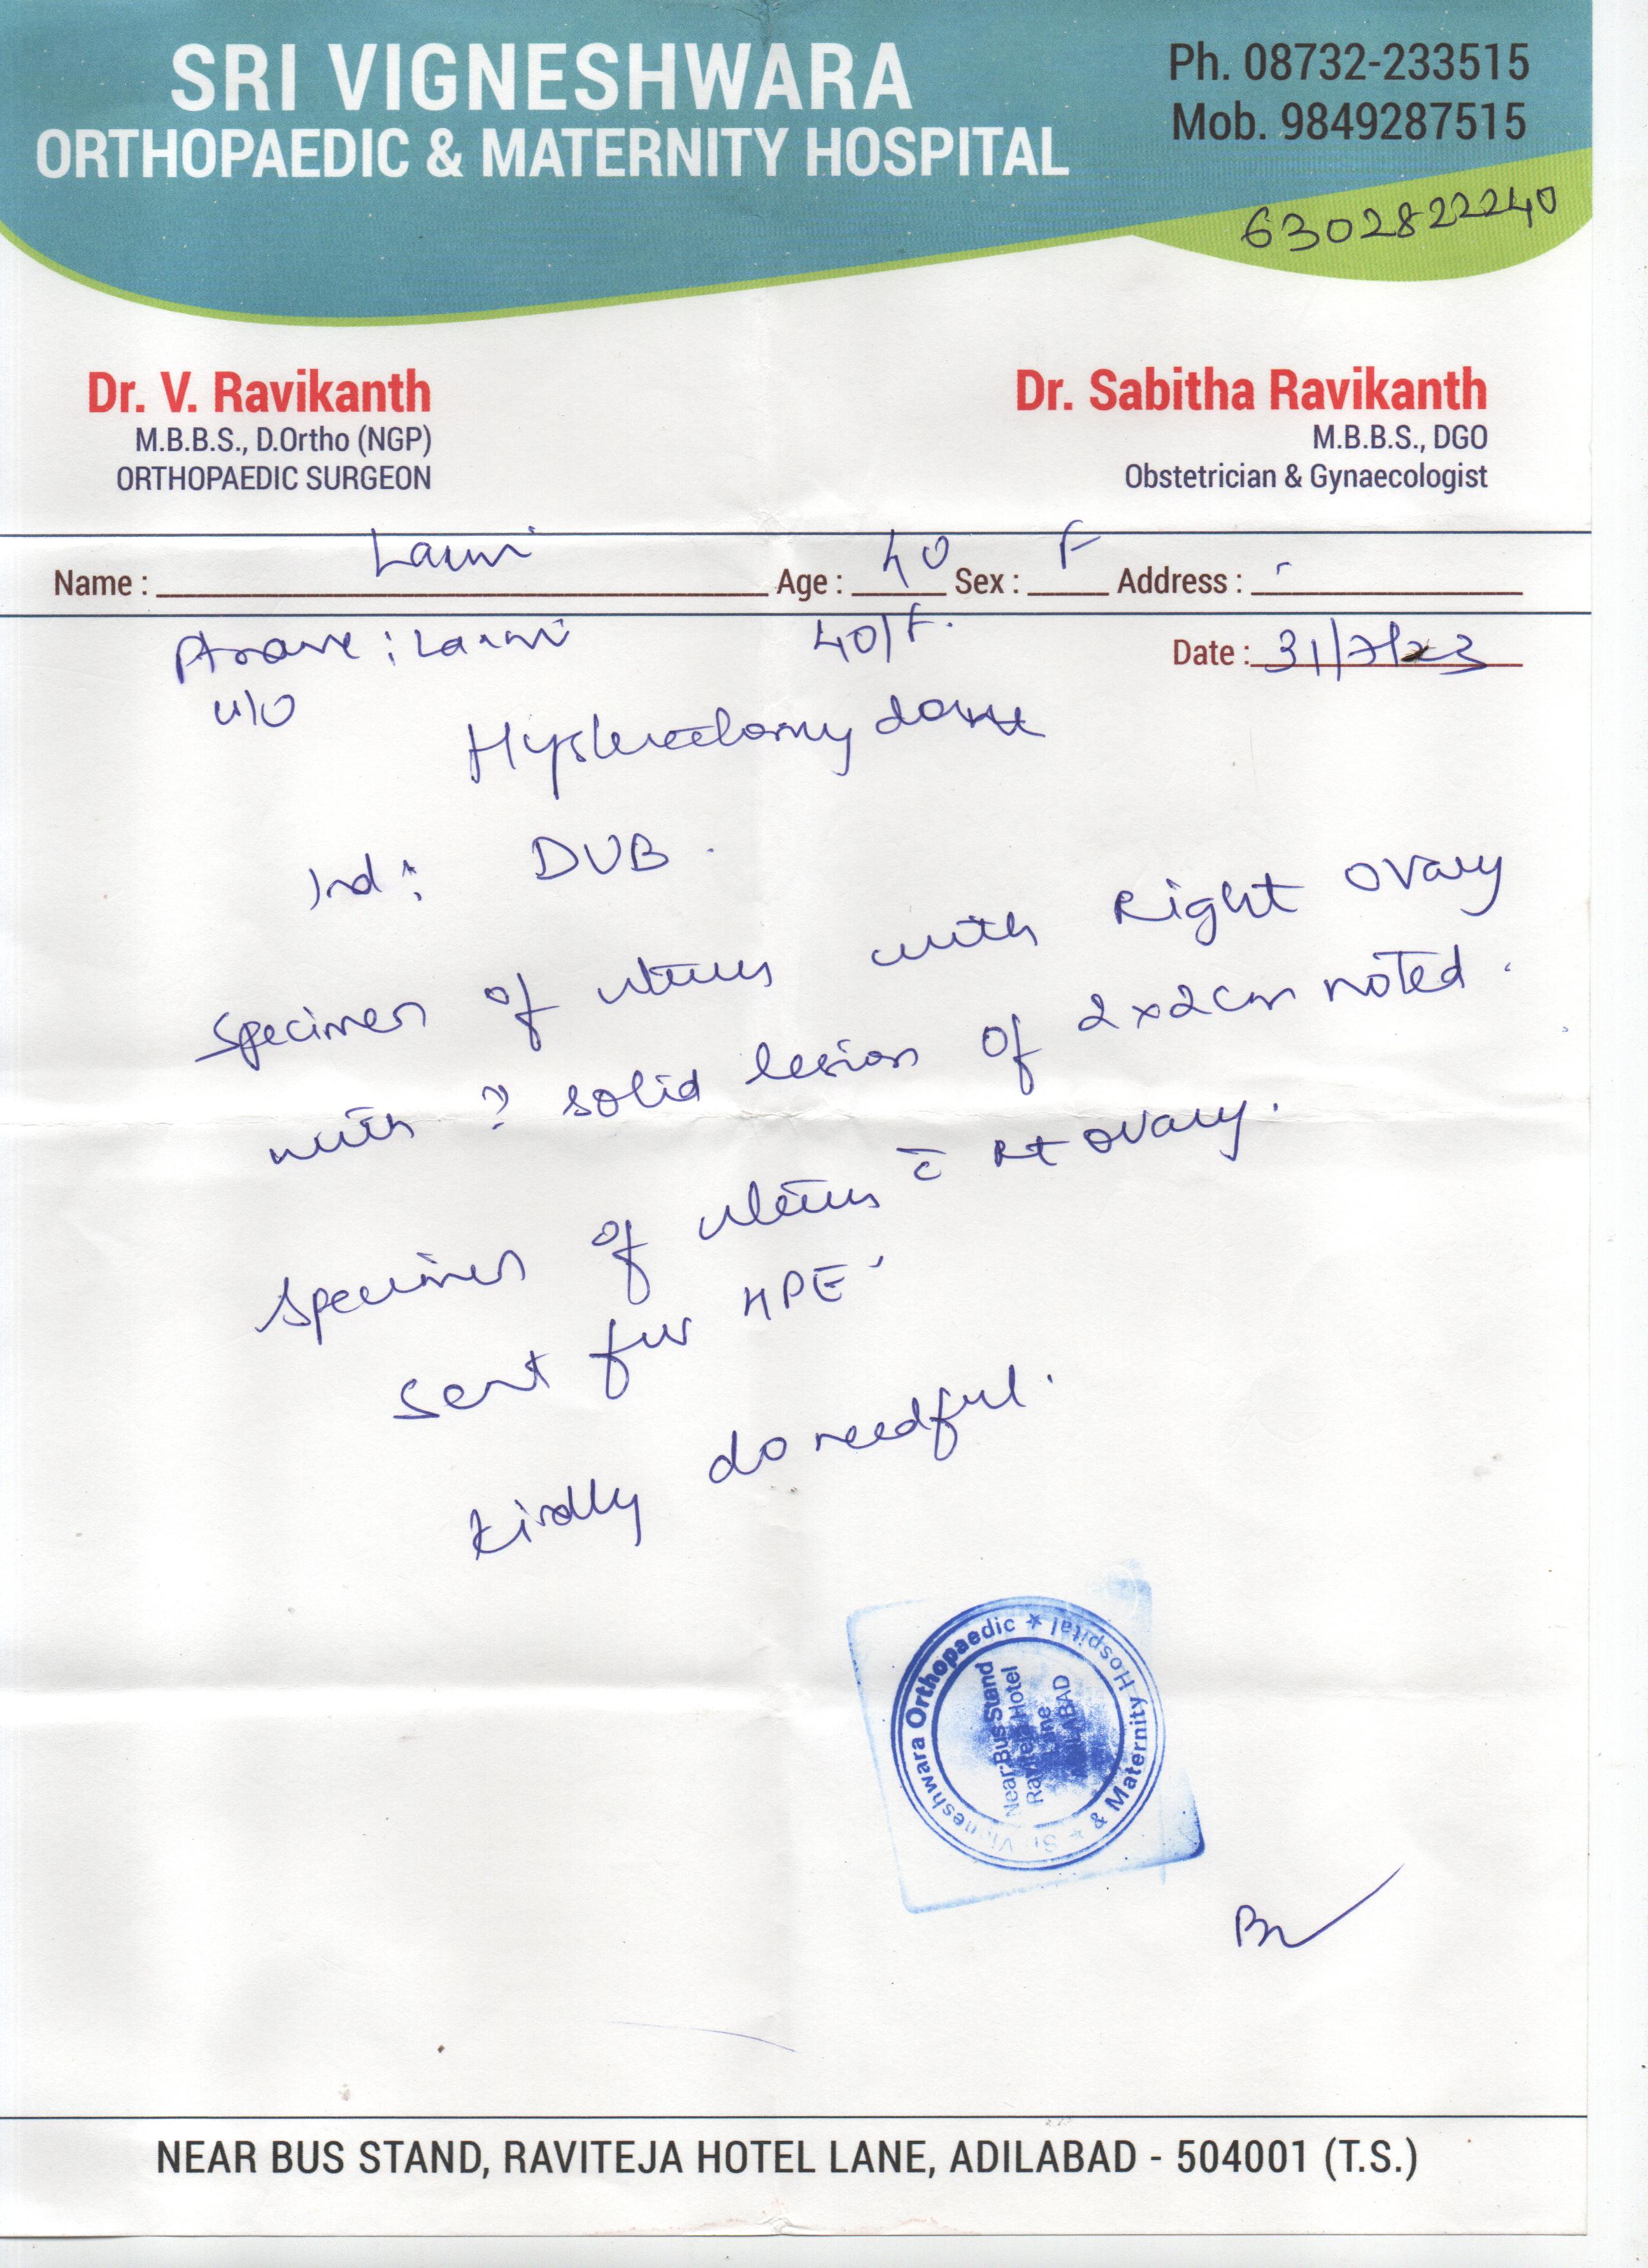 SRI VIGNESHWARA
ORTHOPAEDIC & MATERNITY HOSPITAL
Ph. 08732-233515
Mob. 9849287515
6302822240
Dr. V. Ravikanth
M.B.B.S., D.Ortho (NGP)
ORTHOPAEDIC SURGEON
Dr. Sabitha Ravikanth
M.B.B.S., DGO
Obstetrician & Gynaecologist
Name : Laxmi Age : 40 Sex : F Address : -
: Laxmi 40/F.
Date : 31/7/23
Hysterectomy done
Ind : DUB.
Specimen of uterus with Right Ovary
with ? solid lesion of 2x2cm noted.
Specimen of uterus c̄ Rt ovary.
sent for HPE
kindly do needful.
Sri Vigneshwara Orthopaedic ★ & Maternity Hospital ★
Near Bus Stand
Raviteja Hotel
Lane
ADILABAD
NEAR BUS STAND, RAVITEJA HOTEL LANE, ADILABAD - 504001 (T.S.)